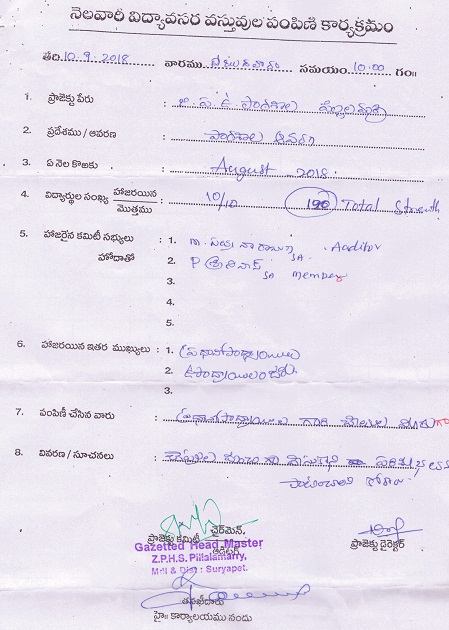 నెలవారీ విద్యావసర వస్తువుల పంపిణి కార్యక్రమం
తేది 10.9.2018 వారము సోమవారం సమయం 10.00 గం॥
1. ప్రాజెక్టు పేరు : జి.ప.ఉ పాఠశాల పిల్లలమర్రి
2. ప్రదేశము / ఆవరణ : పాఠశాల ఆవరణ
3. ఏ నెల కొఱకు : August 2018
4. విద్యార్థుల సంఖ్య హాజరయిన / మొత్తము : 10/10 190 Total Strength
5. హాజరైన కమిటీ సభ్యులు హోదాతో : 1. Auditor
2. P శ్రీనివాస్ SA member
3.
4.
5.
6. హాజరయిన ఇతర ముఖ్యులు : 1. ప్రధానోపాధ్యాయులు
2. ఉపాధ్యాయులందరు
3.
7. పంపిణీ చేసిన వారు : ప్రధానోపాధ్యాయులు గారి చేతుల
8. వివరణ / సూచనలు :
పాటించాలి
ప్రాజెక్టు కమిటీ ఛైర్మెన్,
ఆడిటర్
ప్రాజెక్టు డైరెక్టర్
Gazetted Head Master
Z.P.H.S. Pillalamarry,
Mdl & Dist : Suryapet.
తనిఖీదారు
హై॥ కార్యాలయము నందు